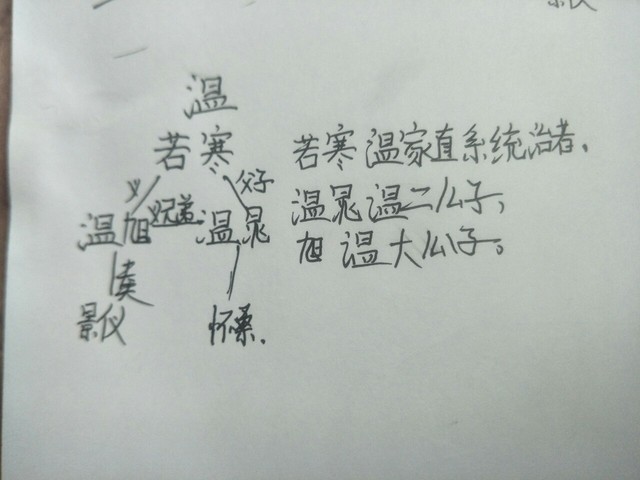 温
若寒
父子
温旭 兄弟 温晁
景仪 怀桑.
若寒 温家直系统治者,
温晁 温二公子,
旭 温大公子。